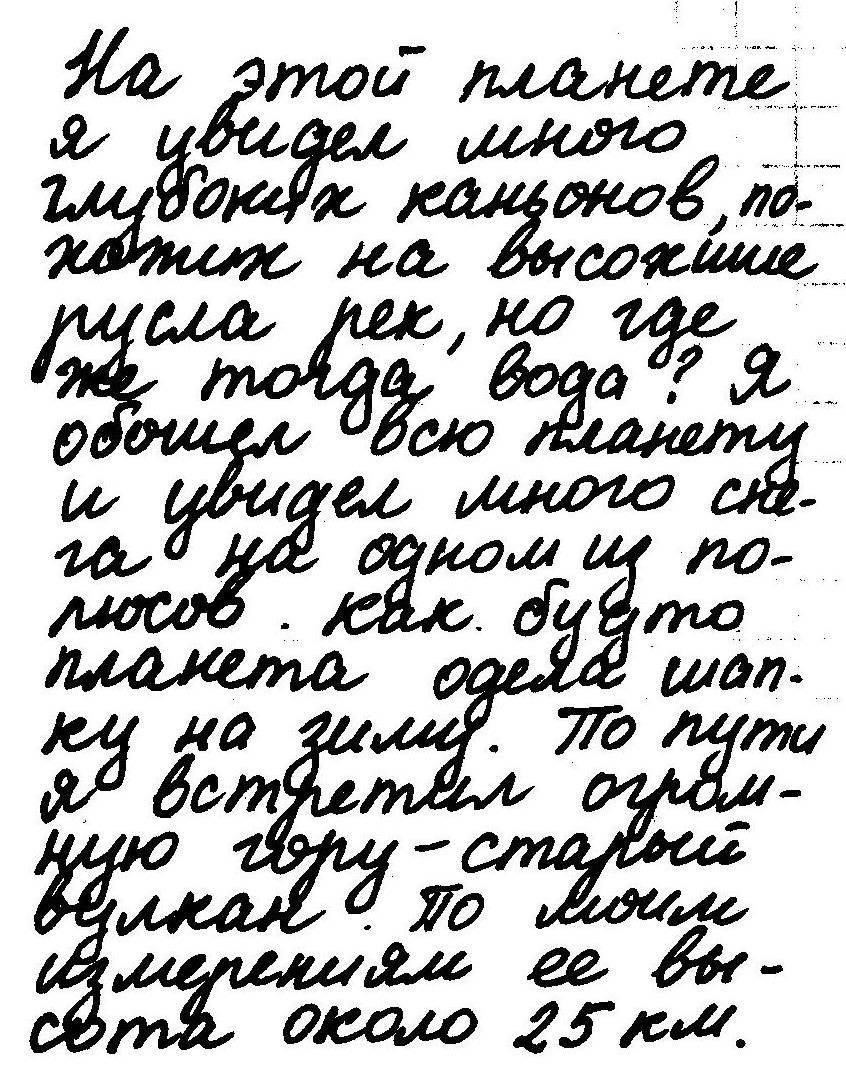 На этой планете
я увидел много
глубоких каньонов, по-
хожих на высохшие
русла рек, но где
же тогда вода? Я
обошел всю планету
и увидел много сне-
га на одном из по-
люсов. как будто
планета одела шап-
ку на зиму. По пути
я встретил огром-
ную гору - старый
вулкан. По моим
измерениям ее вы-
сота около 25 км.